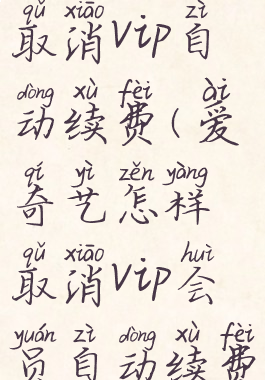 qǔ xiāo zì
取消Vip自
dòng xù fèi ài
动续费(爱
qí yì zěn yàng
奇艺怎样
qǔ xiāo huì
取消Vip会
yuán zì dòng xù fèi
员自动续费